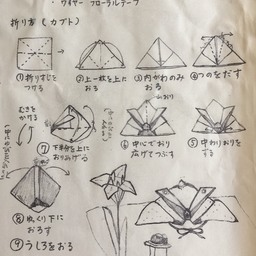 ・ワイヤー フローラルテープ
折り方（カブト）
①折りすじを
つける
②上一枚を上に
おる
③内がわのみ
おる
④つのをだす
むきを
かえる
⑦下半分を上に
おり上げる
⑥中心でおり
広げてつぶす
⑤中わりおりを
する
⑧ゆっくり下に
おろす
⑨うしろをおる